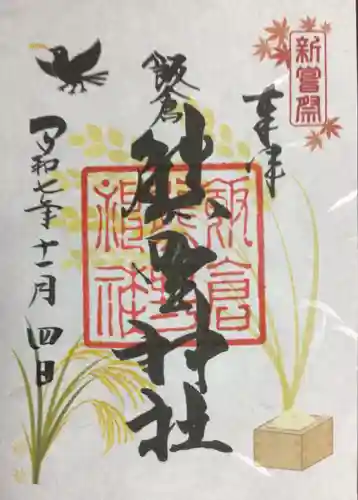 新嘗祭
奉拝
飯倉
熊野神社
飯倉
熊野
神社
令和七年十一月四日